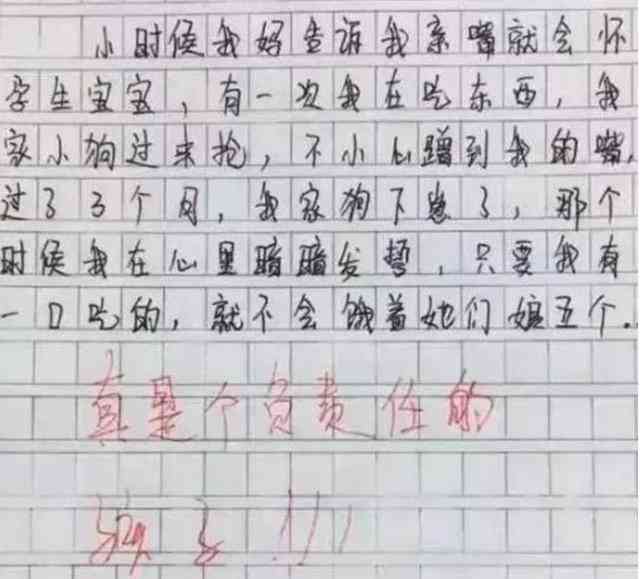 小时候我妈告诉我亲嘴就会怀
孕生宝宝，有一次我在吃东西，我
家小狗过来抢，不小心蹭到我的嘴，
过了3个月，我家狗下崽了，那个
时候我在心里暗暗发誓，只要我有
一口吃的，就不会饿着她们娘五个.
真是个负责任的
孩子!!!